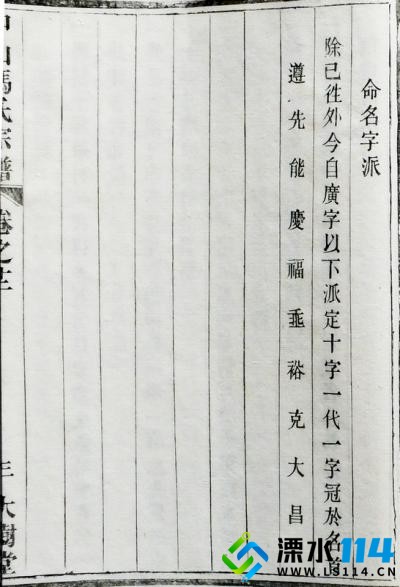 命名字派
除已徃外今自廣字以下派定十字一代一字冠於名首
遵先能慶福垂裕克大昌
馮氏宗譜
卷之
大樹堂
溧水114
WWW.LS114.CN